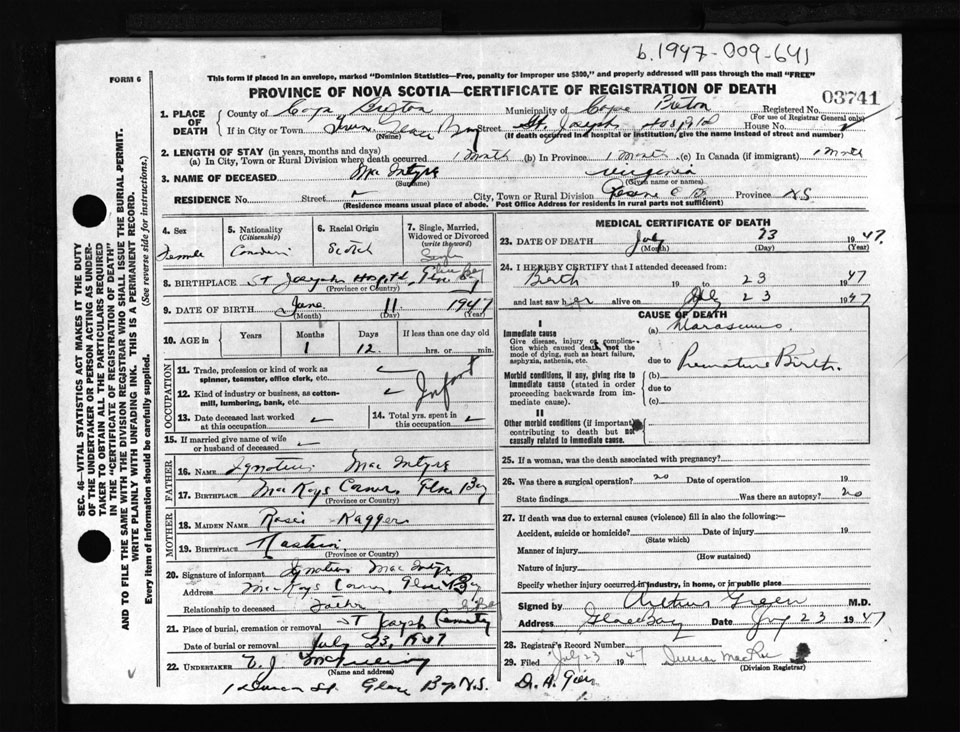 b.1947-009-641
FORM 6
This form if placed in an envelope, marked "Dominion Statistics—Free, penalty for improper use $300," and properly addressed will pass through the mail "FREE"
PROVINCE OF NOVA SCOTIA—CERTIFICATE OF REGISTRATION OF DEATH
03741
1. PLACE OF DEATH
County of Cape Breton Municipality of Cape Breton Registered No.
(For use of Registrar General only)
If in City or Town Town Glace Bay Street St. Joseph Hospital House No.
(Name) (If death occurred in a hospital or institution, give the name instead of street and number)
2. LENGTH OF STAY (in years, months and days)
(a) In City, Town or Rural Division where death occurred 1 Month (b) In Province 1 Month (c) In Canada (if immigrant) 1 Month
3. NAME OF DECEASED Mac Intyre Virginia
(Surname) (Given name or names)
RESIDENCE No. Street City, Town or Rural Division Province NS
(Residence means usual place of abode. Post Office Address for residents in rural parts not sufficient)
4. Sex
Female
5. Nationality
(Citizenship)
6. Racial Origin
Scotch
7. Single, Married, Widowed or Divorced
(write the word)
Single
8. BIRTHPLACE St Josephs Hospital, Glace Bay
(Province or Country)
9. DATE OF BIRTH June 11 1947
(Month) (Day) (Year)
10. AGE in Years Months Days If less than one day old
1 12 hrs. or min.
OCCUPATION
11. Trade, profession or kind of work as spinner, teamster, office clerk, etc.
12. Kind of industry or business, as cotton-mill, lumbering, bank, etc.
Infant
13. Date deceased last worked at this occupation
14. Total yrs. spent in this occupation
15. If married give name of wife or husband of deceased
FATHER
16. NAME Ignatius Mac Intyre
17. BIRTHPLACE MacKays Corner, Glace Bay
(Province or Country)
MOTHER
18. MAIDEN NAME
19. BIRTHPLACE
(Province or Country)
20. Signature of informant Ignatius Mac Intyre
Address MacKays Corner, Glace Bay
Relationship to deceased Father
21. Place of burial, cremation or removal St Joseph Cemetery
Date of burial or removal July 23, 1947
22. UNDERTAKER V. J.
(Name and address)
St. Glace Bay N.S.
MEDICAL CERTIFICATE OF DEATH
23. DATE OF DEATH July 23 1947.
(Month) (Day) (Year)
24. I HEREBY CERTIFY that I attended deceased from:
Birth 19 to 23 1947
and last saw her alive on July 23 1947
CAUSE OF DEATH
I
Immediate cause
Give disease, injury or complication which caused death, not the mode of dying, such as heart failure, asphyxia, asthenia, etc.
(a) Marasmus
due to
Morbid conditions, if any, giving rise to immediate cause (stated in order proceeding backwards from immediate cause).
(b) Premature Birth.
due to
(c)
II
Other morbid conditions (if important) contributing to death but not causally related to immediate cause.
25. If a woman, was the death associated with pregnancy?
26. Was there a surgical operation? no Date of operation 19
State findings Was there an autopsy? no
27. If death was due to external causes (violence) fill in also the following:—
Accident, suicide or homicide? Date of injury 19
(State which)
Manner of injury
(How sustained)
Nature of injury
Specify whether injury occurred in industry, in home, or in public place
Signed by Arthur Green M.D.
Address Glace Bay Date July 23 1947
28. Registrar's Record Number
29. Filed July 23 1947 Duncan MacRae
(Division Registrar)
SEC. 46—VITAL STATISTICS ACT MAKES IT THE DUTY OF THE UNDERTAKER OR PERSON ACTING AS UNDERTAKER TO OBTAIN ALL THE PARTICULARS REQUIRED IN THE "CERTIFICATE OF REGISTRATION OF DEATH" AND TO FILE THE SAME WITH THE DIVISION REGISTRAR WHO SHALL ISSUE THE BURIAL PERMIT.
WRITE PLAINLY WITH UNFADING INK. THIS IS A PERMANENT RECORD.
Every item of information should be carefully supplied. (See reverse side for instructions.)